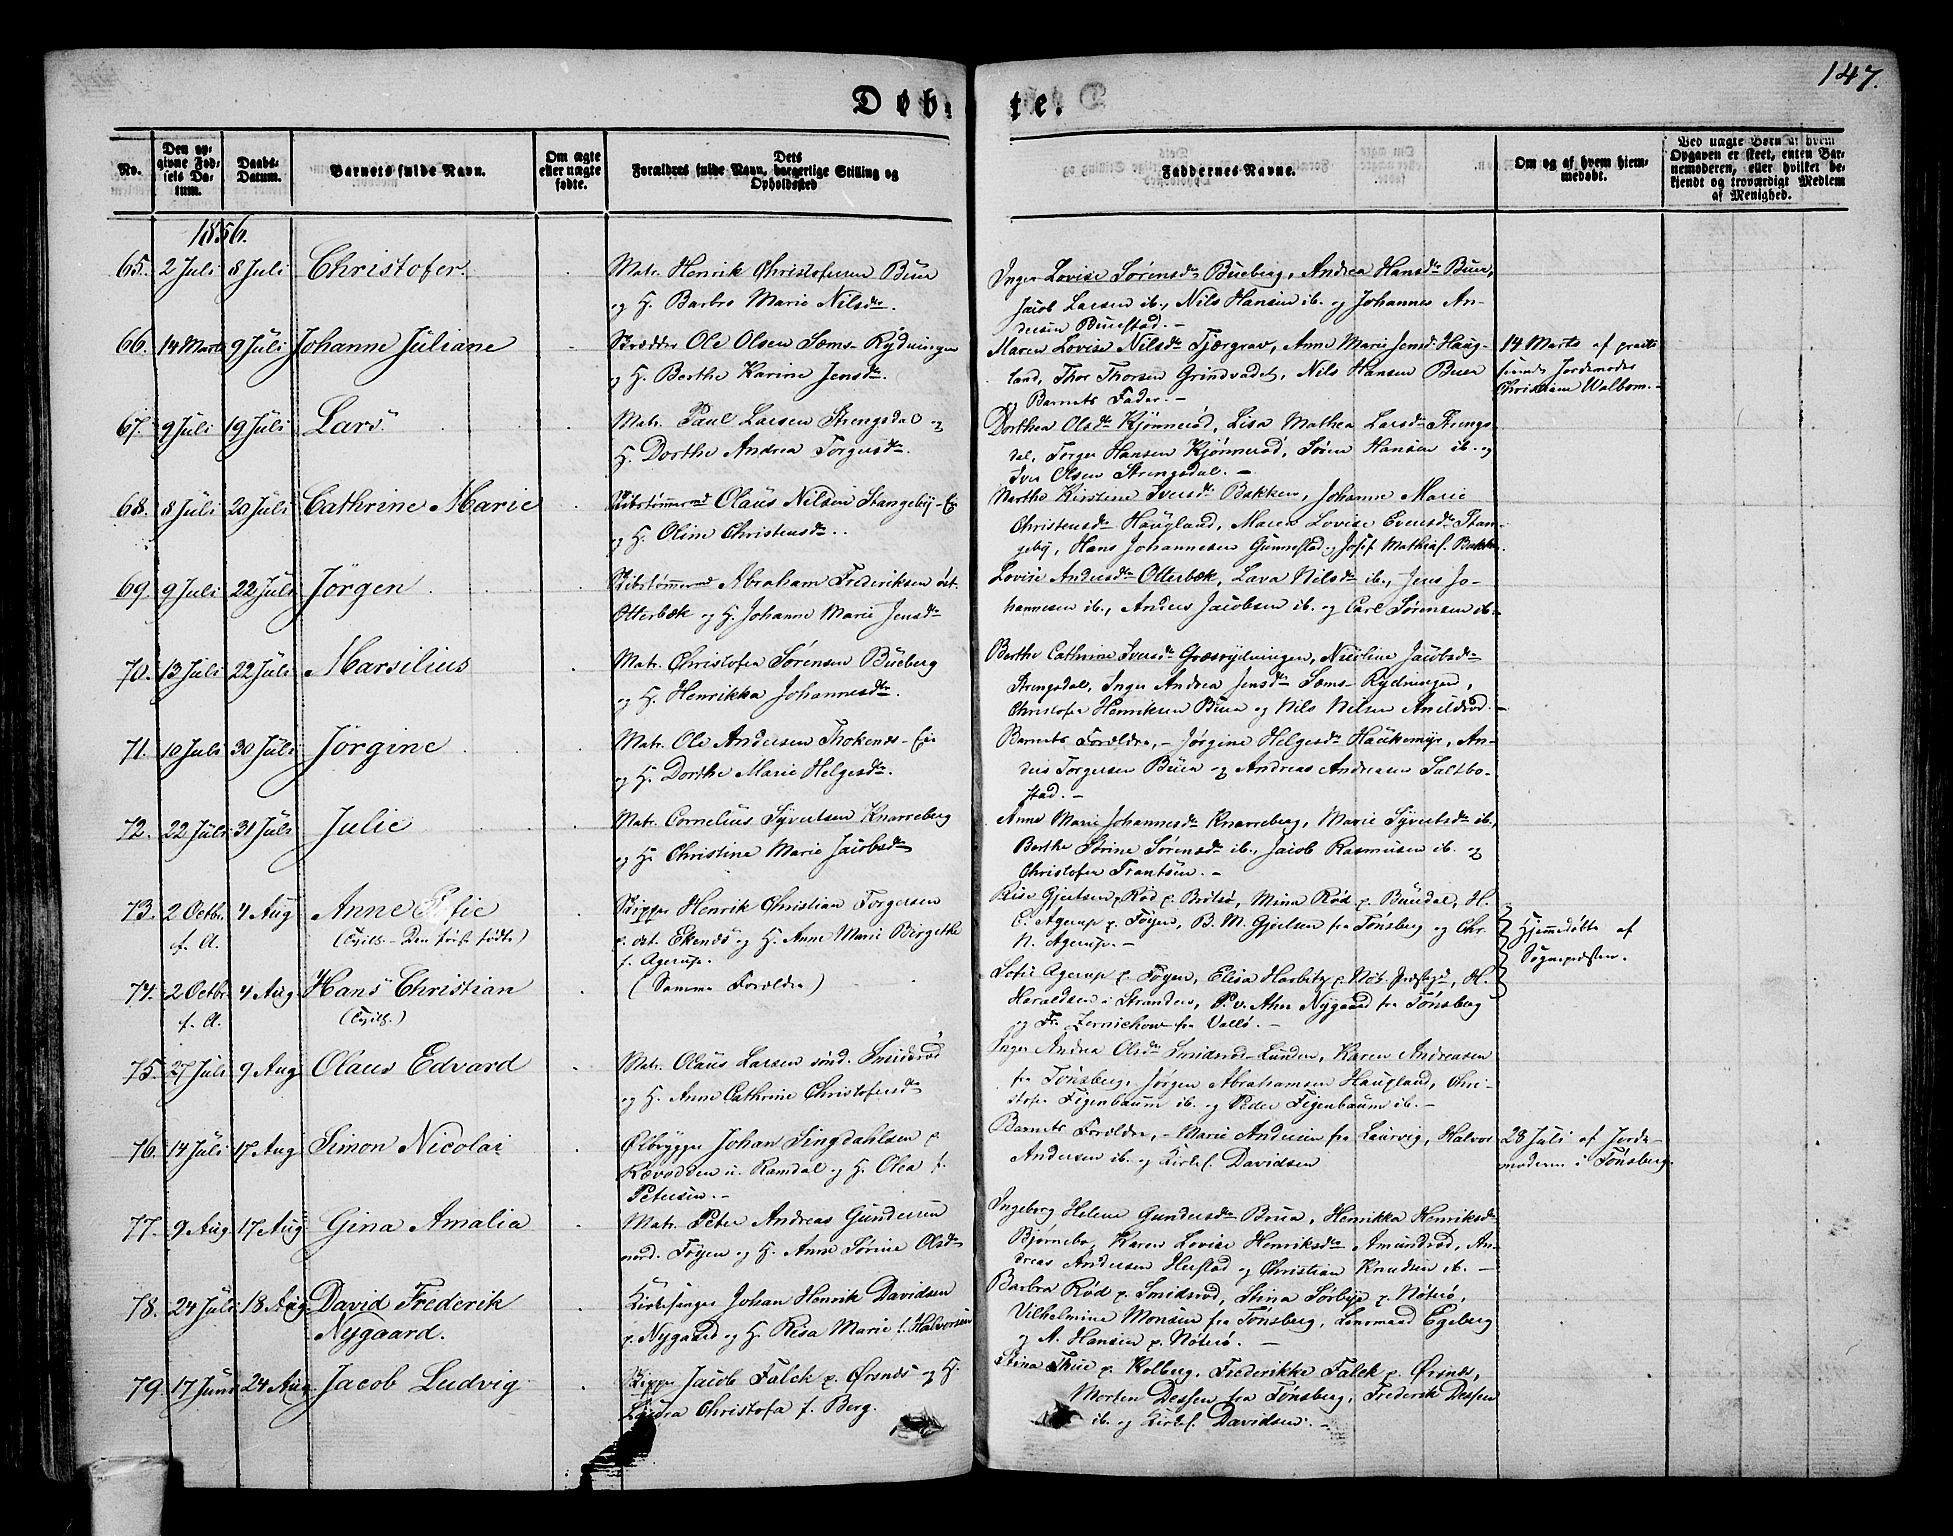 147.
Døbte.
No.
Den opgivne Fødsels Datum.
Daabs-Datum.
Barnets fulde Navn.
Om ægte eller uægte fødte.
Dets Forældres fulde Navn, borgerlige Stilling og Opholdssted
Faddernes Navne.
Om og af hvem hjemmedøbt.
Ved uægte Børn af hvem Opgaven er skeet, enten Barnemoderen, eller hvilket bekjendt og troværdigt Medlem af Menighed.
1856.
65. 2 Juli 8 Juli Christofer.
Matr. Henrik Christofersen Buer
og H. Barbro Marie Nilsdtr.
Inger Lovise Sørensdtr Bueberg, Andrea Hansdtr Buer,
Jacob Larsen ib., Nils Hansen ib. og Johannes An-
dersen Buerstad.-
66. 14 Marts 9 Juli Johanne Juliane
Skrædder Ole Olsen Sæms-Rydningen
og H. Berthe Karine Jensdtr.
Maren Lovise Nilsdtr Tjærgrav, Anne Marie Jensd. Haug-
land, Thor Thorsen Grindvadet, Nils Hansen Buer
og Barnets Fader.-
14 Marts af
Jordemoder
Christiane Walbom.-
67. 9 Juli 19 Juli Lars
Matr. Paul Larsen Strengsdal og
H. Dorthe Andrea Torgersdtr.
Dorthea Olsdtr Kjønnerød, Lisa Mathea Larsdtr Strengs-
dal, Torger Hansen Kjønnerød, Søren Hansen ib. og
Iver Olsen Strengsdal.-
68. 8 Juli 20 Juli Cathrine Marie
Skibstømmermd Olaus Nilsen Stangeby-Ei
og H. Oline Christensdtr.
Marthe Kirstine Iversdtr Bakken, Johanne Marie
Christensdtr Haugland, Maren Lovise Evensdtr Stan-
geby, Hans Johannesen Gunnestad og Josef Mathias. Bakken.
69. 9 Juli 22 Juli Jörgen
Skibstømmermd Abraham Frederiksen øst.
Otterbæk og H. Johanne Marie Jensdtr
Lovise Andersdtr Otterbæk, Lava Nilsdtr ib., Jens Jo-
hannesen ib., Anders Jacobsen ib. og Carl Sørensen ib.-
70. 13 Juli 22 Juli Marsilius
Matr. Christofer Sørensen Bueberg
og H. Henrikka Johannesdtr.
Berthe Cathrine Iversdtr Græsrydningen, Nicoline Jacobsdtr
Strengsdal, Inger Andrea Jensdtr Sæms-Rydningen,
Christofer Henriksen Buer og Nils Nilsen
71. 10 Juli 30 Juli Jörgine
Matr. Ole Andersen Thokenæs-Eie
og H. Dorthe Marie Helgesdtr.
Barnets Forældre,- Jørgine Helgesdtr Haukemyr, An-
ders Torgersen Buer og Andreas Andreasen Saltbo-
stad.-
72. 22 Juli 31 Juli Julie
Matr. Cornelius Syvertsen Knarreberg
og H. Christine Marie Jacobsdtr
Anne Marie Johannesdtr Knarreberg, Marie Syvertsdtr ib.,
Berthe Sørine Sørensdtr ib., Jacob Rasmusen ib. og
Christofer Frantsen.-
73. 2 Octbr. f. A. 4 Aug Anne Sofie
(Tvill.- Den først fødte)
Skipper Henrik Christian Torgersen
p. øst. Ekenæs og H. Anne Marie Birgitte
f. Agerup.
Risa Gjertsen Rød p. Brötsö, Mina Rød p. Bundal, H.
C. Agerup p. Føyen, B. M. Gjertsen fra Tønsberg og Chr.
N. Agerup.-
Hjemmedøbte af
Sognepræsten.
74. 2 Octbr. f. A. 4 Aug. Hans Christian
(Tvill.)
(Samme Forældre)
Sofie Agerup p. Føyen, Elisa Harbitz p. Nøt. Præstegd, H.
Heraldsen i Stranden, P. v. Ahn Nygaard fra Tønsberg
og Fr. Zernichow fra Vallø.-
75. 27 Juli 9 Aug Olaus Edvard
Matr. Olaus Larsen sönd. Smidsrød
og H. Anne Cathrine Christofersdtr
Inger Andrea Olsdtr Smidsrød-Lunden, Karen Andreasen
fra Tønsberg, Jørgen Abrahamsen Haugland, Chri-
stofer Figenbaum ib. og Peder Figenbaum ib.-
76. 14 Juli 17 Aug Simon Nicolai
Ølbrygger Johan Singdahlsen p.
Rævodden u. Ramdal og H. Olea f.
Petersen.-
Barnets Forældre,- Marie Andersen fra Laurvig, Halvor
Andersen ib. og Kirkes. Davidsen
28 Juli af Jorde-
moderen i Tønsberg
77. 9 Aug 17 Aug Gina Amalia
Matr. Peter Andreas Gundersen
nord. Føyen og H. Anne Sørine Olsdtr
Ingeborg Helene Gundersdtr Brua, Henrikka Henriksdtr
Bjørnebo, Karen Lovise Henriksdtr Amundrød, An-
dreas Andersen Herstad og Christian Knudsen ib.-
78. 24 Juli 18 Aug David Frederik
Nygaard.
Kirkesanger Johan Henrik Davidsen
p. Nygaard og H. Risa Marie f. Halvorsen
Barbra Rød p. Smidsrød, Stina Sorbye p. Nøterø,
Vilhelmine Monsen fra Tønsberg, Lensmand Egeberg
og A. Hansen p. Nøterø.-
79. 17 Juni 24 Aug Jacob Ludvig
Skipper Jacob Falck p. Ørsnæs og H.
Laura Christofa f. Berg.
Stina Thue p. Kolberg, Frederikke Falck p. Ørsnæs,
Morten Dessen fra Tønsberg, Frederik Dessen
ib. og Kirkes. Davidsen.-